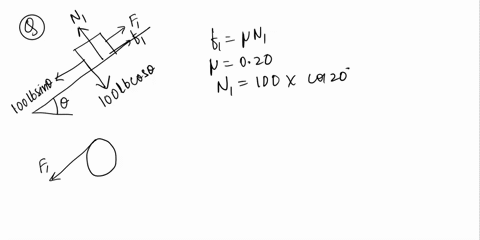 Q
N₁
F₁
f₁
100lbsinθ
100lbcosθ
θ
F₁
f₁ = μN₁
μ = 0.20
N₁ = 100 × cos20°